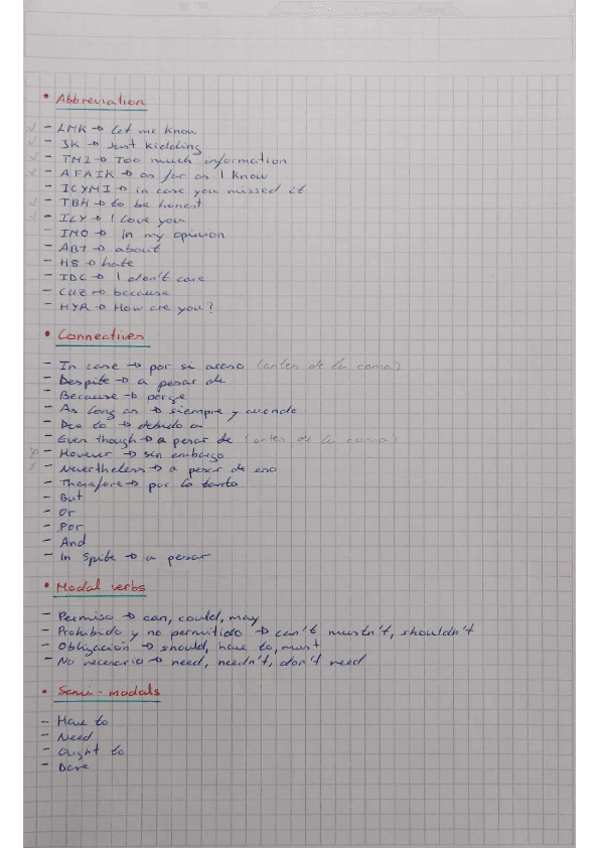 • Abbreviation
- LMK → let me know
- JK → Just kidding
- TMI → Too much information
- AFAIK → as far as I know
- ICYMI → in case you missed it
- TBH → to be honest
- ILY → I love you
- IMO → in my opinion
- ABT → about
- H8 → hate
- IDC → I don't care
- CUZ → because
- HYR → How are you?
• Connectives
- In case → por si acaso (antes de la coma)
- Despite → a pesar de
- Because → porqe
- As long as → siempre y cuando
- Due to → debido a
- Even though → a pesar de (antes de la coma)
- However → sin embargo
- Nevertheless → a pesar de eso
- Therefore → por lo tanto
- But
- Or
- For
- And
- In Spite → a pesar
• Modal verbs
- Permiso → can, could, may
- Prohibido y no permitido → can't mustn't, shouldn't
- Obligación → should, have to, must
- No necesario → need, needn't, don't need
• Semi-modals
- Have to
- Need
- Ought to
- Dare